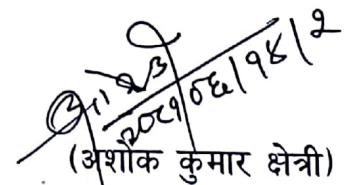 २०८१।०६।१४।२
(अशोक कुमार क्षेत्री)